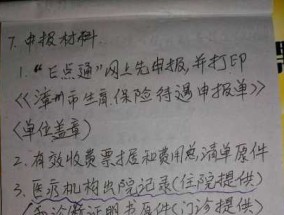 7. 申报材料
1. “E点通”网上先申报，并打印
《漳州市生育保险待遇申报单》
（单位盖章）
2. 有效收费票据和费用总清单原件
3. 医疗机构出院记录（住院提供）
和诊断证明书原件（门诊提供）